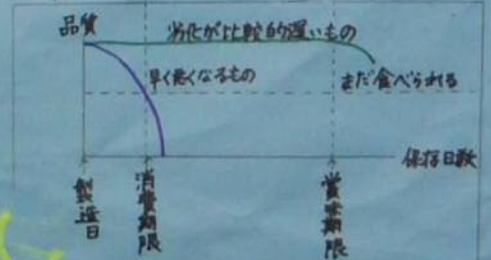 品質
劣化が比較的遅いもの
早く悪くなるもの
まだ食べられる
保存日数
製造日
消費期限
賞味期限